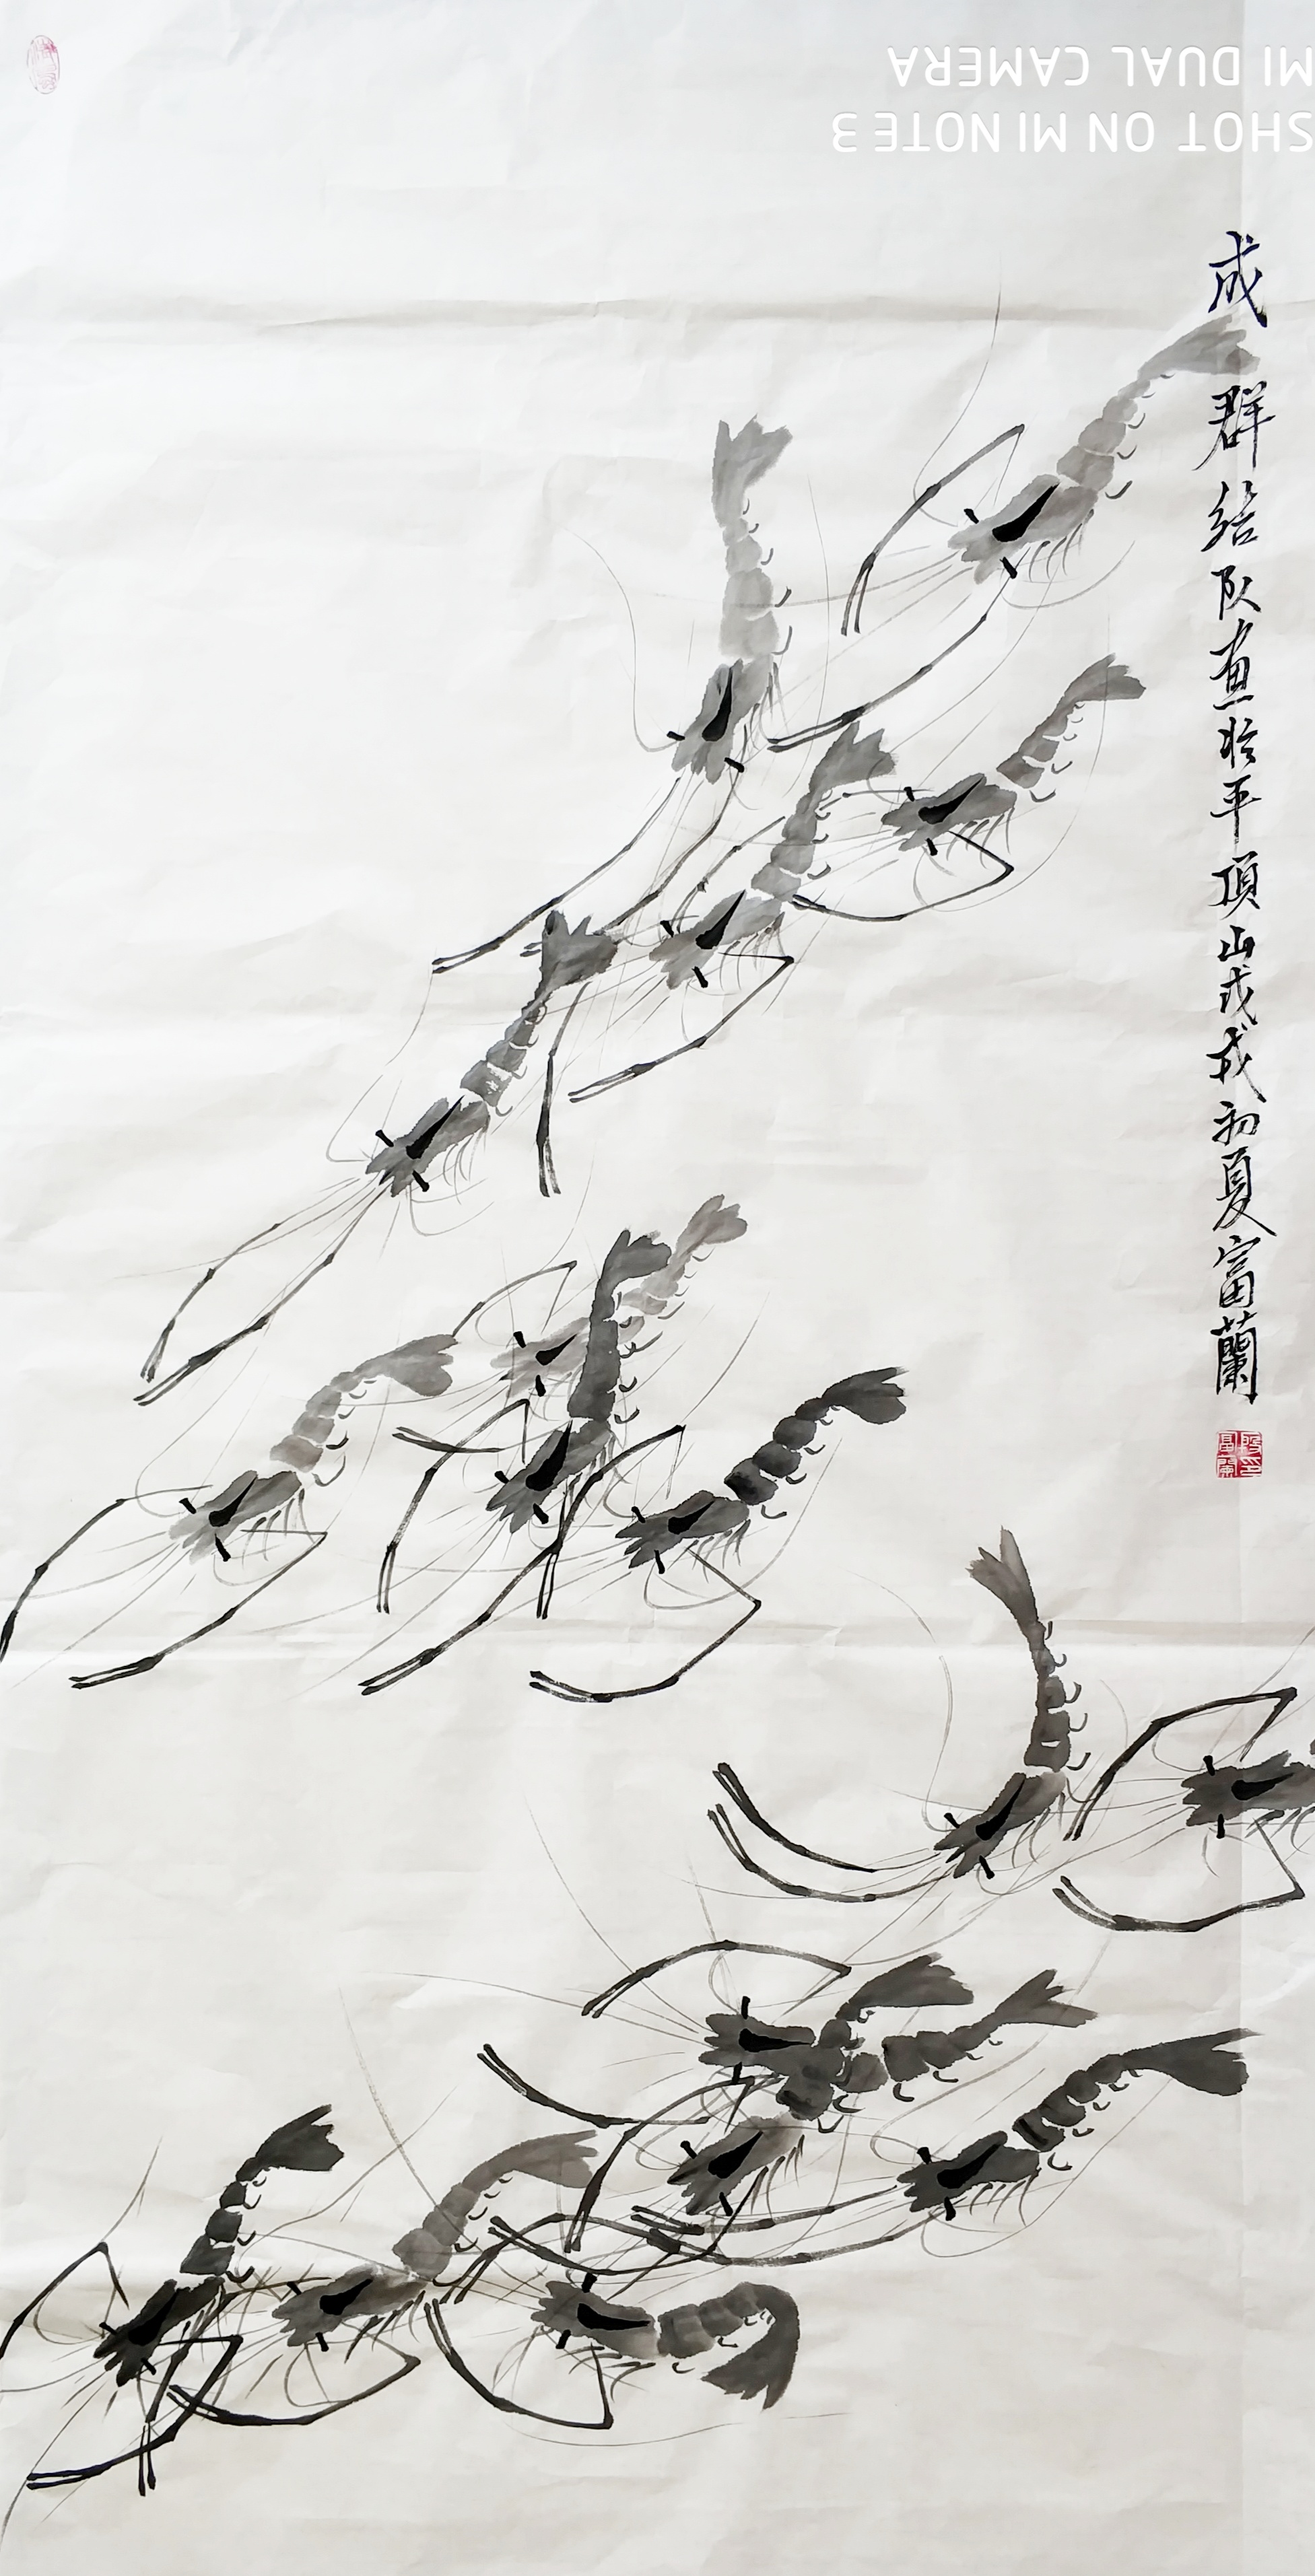 成群结队画於平顶山戊戌初夏富蘭
SHOT ON MI NOTE 3
MI DUAL CAMERA